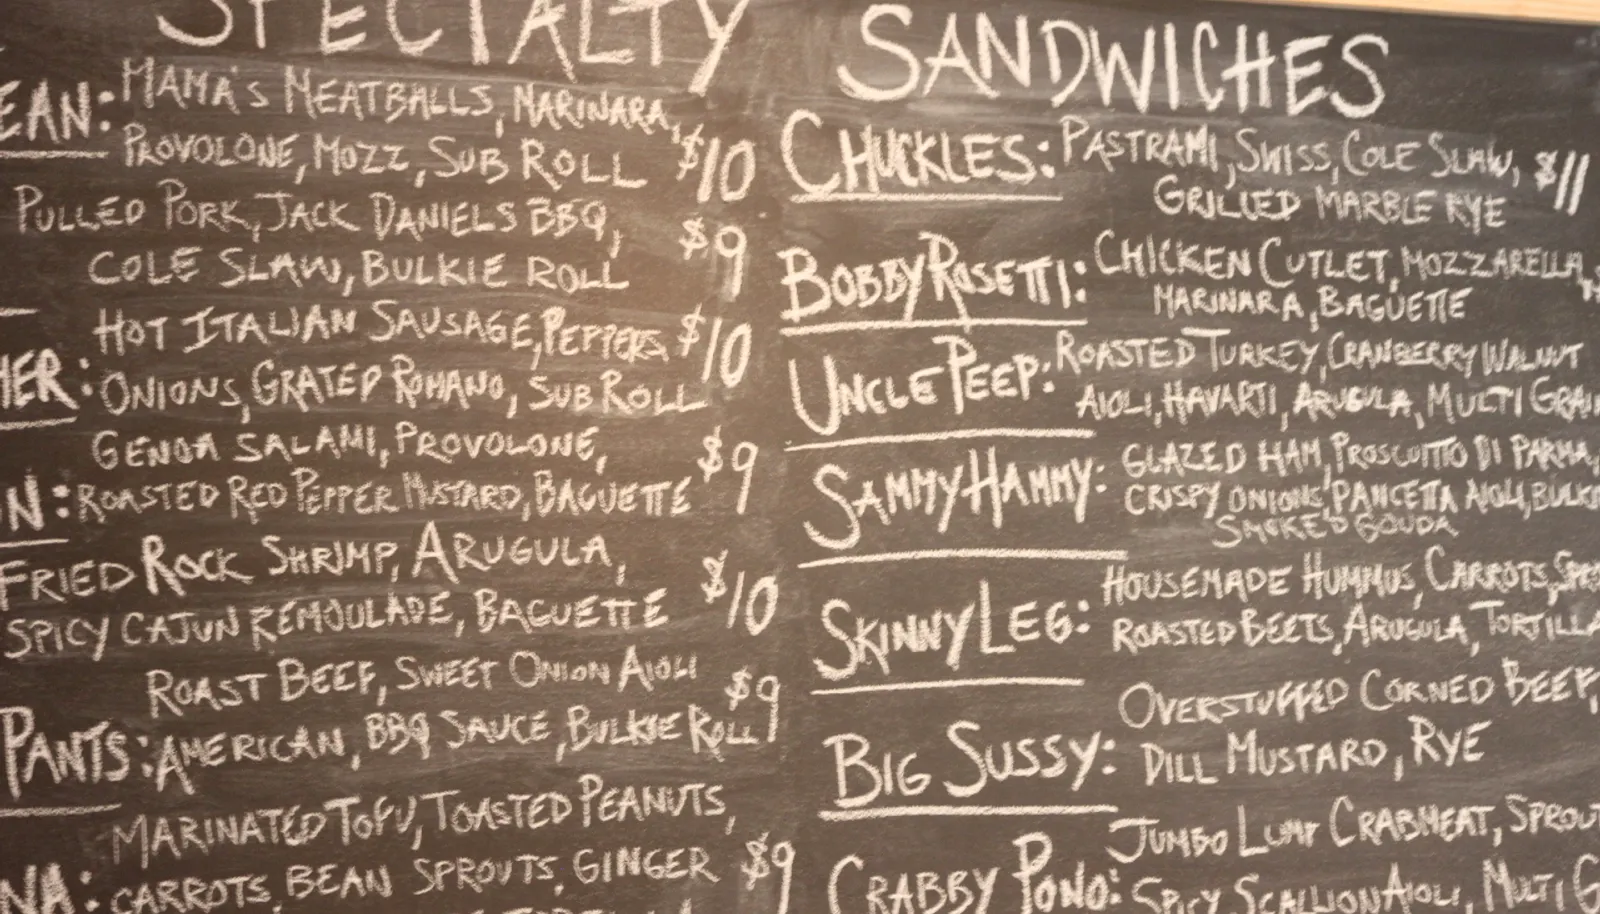 SPECIALTY SANDWICHES
EAN: MAMA'S MEATBALLS, MARINARA,
PROVOLONE, MOZZ, SUB ROLL $10
PULLED PORK, JACK DANIELS BBQ,
COLE SLAW, BULKIE ROLL $9
HOT ITALIAN SAUSAGE, PEPPERS
HER: ONIONS, GRATED ROMANO, SUB ROLL $10
GENOA SALAMI, PROVOLONE,
N: ROASTED RED PEPPER MUSTARD, BAGUETTE $9
FRIED ROCK SHRIMP, ARUGULA,
SPICY CAJUN REMOULADE, BAGUETTE $10
ROAST BEEF, SWEET ONION AIOLI
PANTS: AMERICAN, BBQ SAUCE, BULKIE ROLL $9
MARINATED TOFU, TOASTED PEANUTS,
NA: CARROTS, BEAN SPROUTS, GINGER $9
CHUCKLES: PASTRAMI, SWISS, COLE SLAW, $11
GRILLED MARBLE RYE
BOBBY ROSETTI: CHICKEN CUTLET, MOZZARELLA,
MARINARA, BAGUETTE
UNCLE PEEP: ROASTED TURKEY, CRANBERRY WALNUT
AIOLI, HAVARTI, ARUGULA, MULTI GRAI
SAMMY HAMMY: GLAZED HAM, PROSCUITTO DI PARMA,
CRISPY ONIONS, PANCETTA AIOLI, BULKI
SMOKED GOUDA
SKINNY LEG: HOUSEMADE HUMMUS, CARROTS,
ROASTED BEETS, ARUGULA, TORTILLA
BIG SUSSY: OVERSTUFFED CORNED BEEF,
DILL MUSTARD, RYE
CRABBY PONO: JUMBO LUMP CRABMEAT, SPROUT
SPICY SCALLION AIOLI, MULTI G